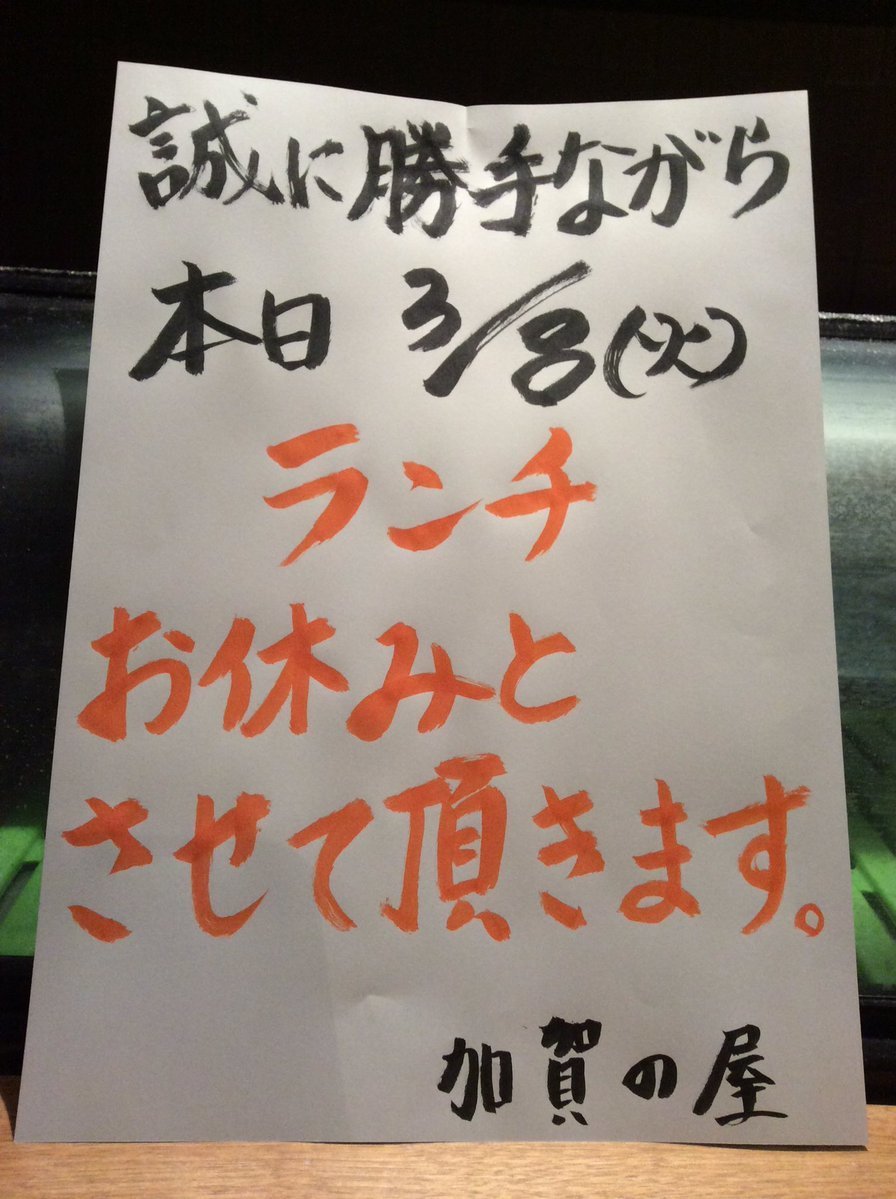 誠に勝手ながら
本日 3/8(火)
ランチ
お休みと
させて頂きます。
加賀の屋